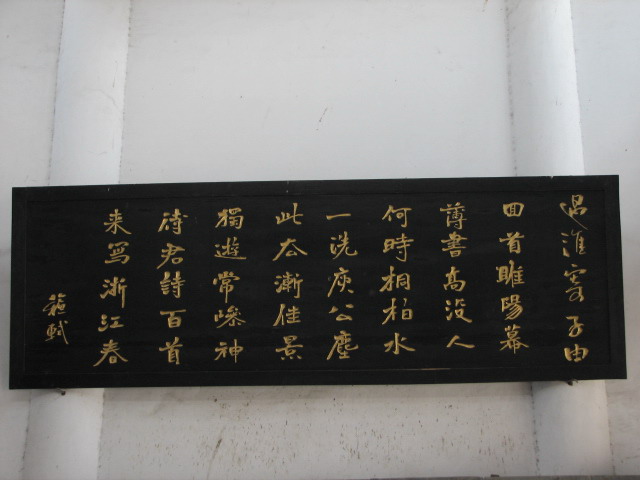 過淮寄子由
回首睢陽幕
薄書高没人
何時桐柏水
一洗庾公塵
此去漸佳景
獨遊常慘神
待君詩百首
来寫浙江春
蘇軾